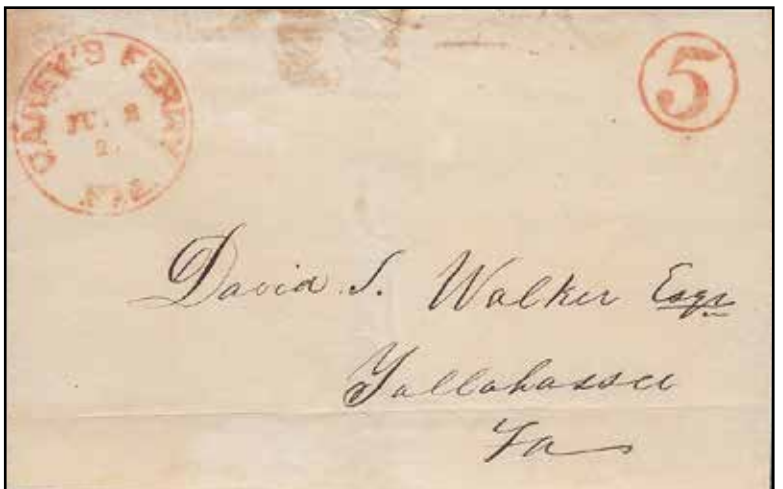 GAREY'S FERRY
5
David S. Walker Esqr
Tallahassee
Fa